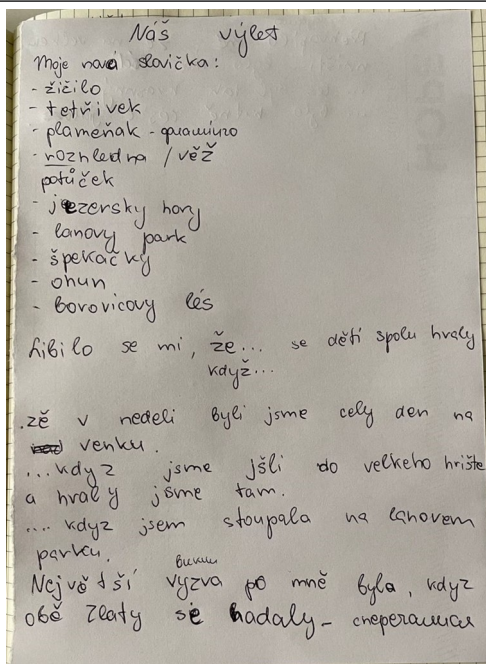 Náš výlet
Moje nová slovička:
- žižilo
- tetřivek
- plameňak - фламинго
- rozhledna / věž
potůček
- jezersky hory
- lanovy park
- špekačky
- ohun
- borovicovy lés
Libilo se mi, že... se děti spolu hraly
když...
.zě v nedeli byli jsme cely den na
venku.
...kdyz jsme jšli do velkeho hrište
a hraly jsme tam.
.... kdyz jsem stoupala na lanovem
parku.
Největší vyzva po mně byla, když
obě Zlaty se hadaly -